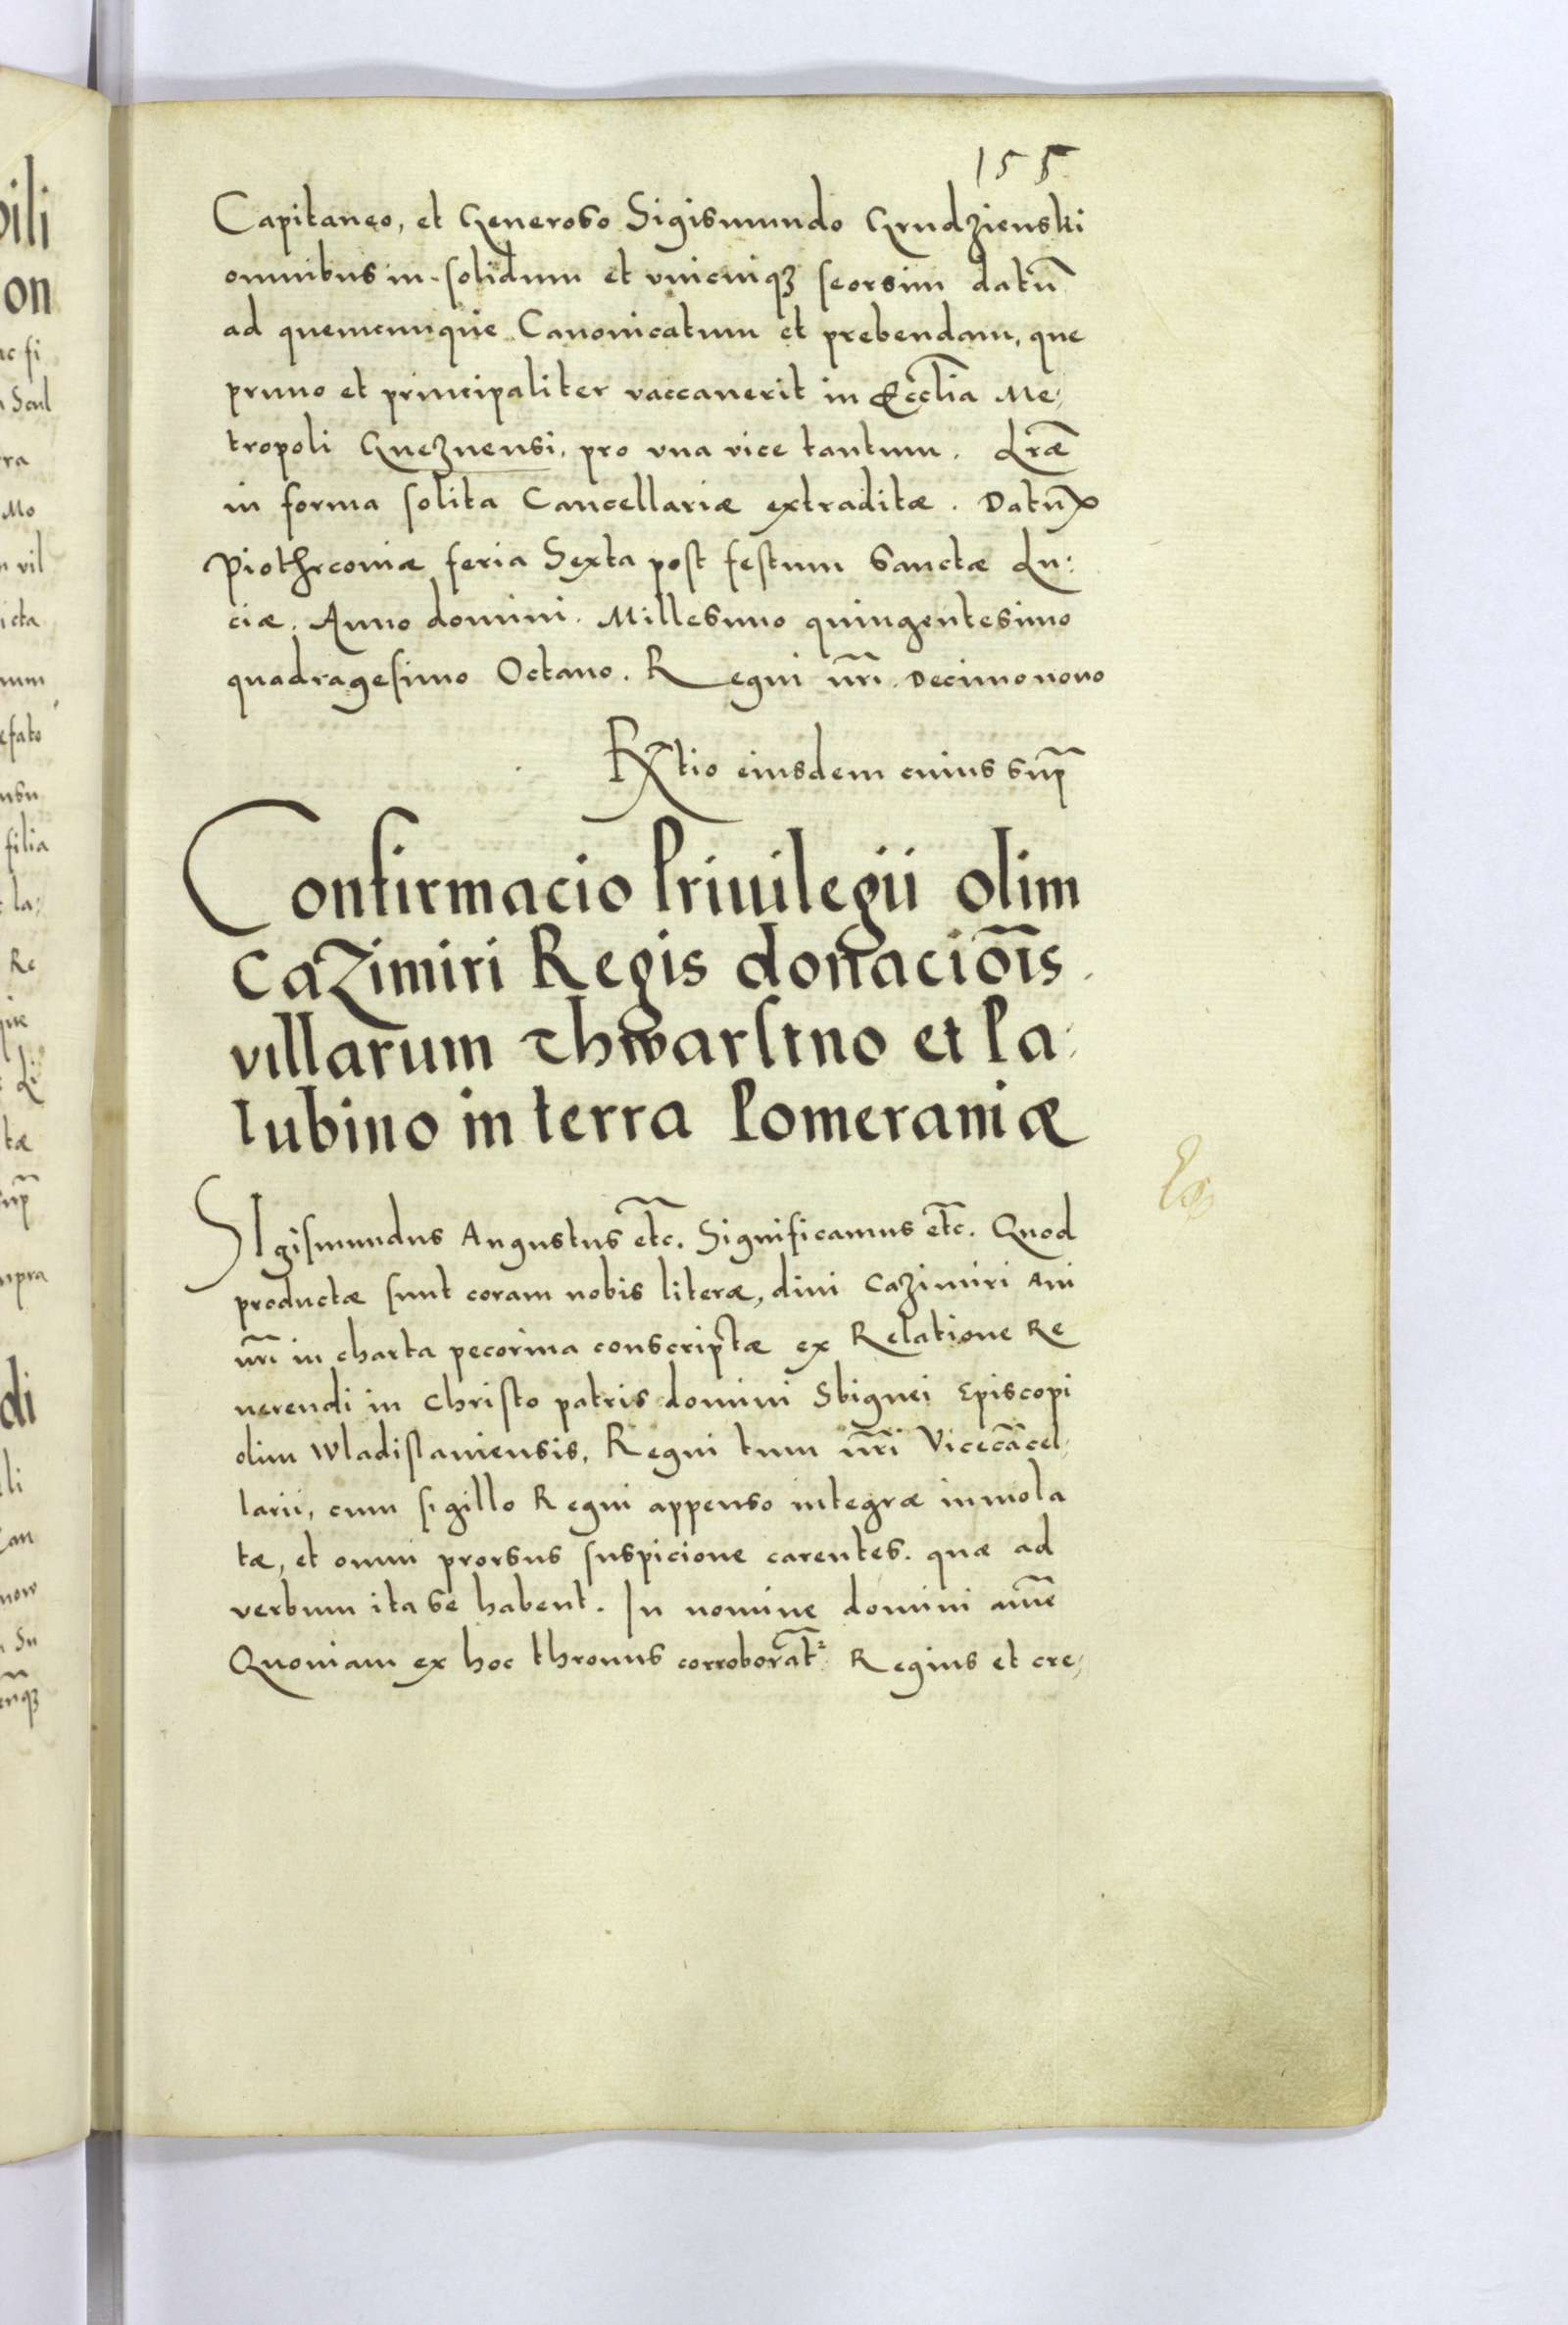 155
Capitaneo, et Generoso Sigismundo Grudzienski
omnibus in solidum et vnicuiqȝ seorsim datū
ad quemcunque Canonicatum et prebendam, que
primo et principaliter vaccauerit in Ecclīa Me,
tropoli Gneznensi, pro vna vice tantum. Lr̄æ
in forma solita Cancellariæ extraditæ. Datum
Piothrcouiæ feria Sexta post festum Sanctæ Lu:
ciæ. Anno domini. Millesimo quingentesimo
quadragesimo Octauo. Regni nr̄i. Decimonono
Rĕtio eiusdem cuius sup̄
Confirmacio Priuilegii olim
Cazimiri Regis donaciōis
villarum Thwarstno et Pa:
lubino in terra Pomeraniæ
SIgismundus Augustus etc. Significamus etc. Quod
productæ sunt coram nobis literæ, diui Cazimiri Aui
nr̄i in charta pecorina conscriptæ ex Relatione Re
uerendi in Christo patris domini Sbignei Episcopi
olim Wladislauiensis, Regni tum nr̄i Vicecācel,
larii, cum sigillo Regni appenso integræ inuiola
tæ, et omni prorsus suspicione carentes. quæ ad
verbum ita se habent. In nomine domini amē
Quoniam ex hoc thronus corroborat᷑ Regius et cre,